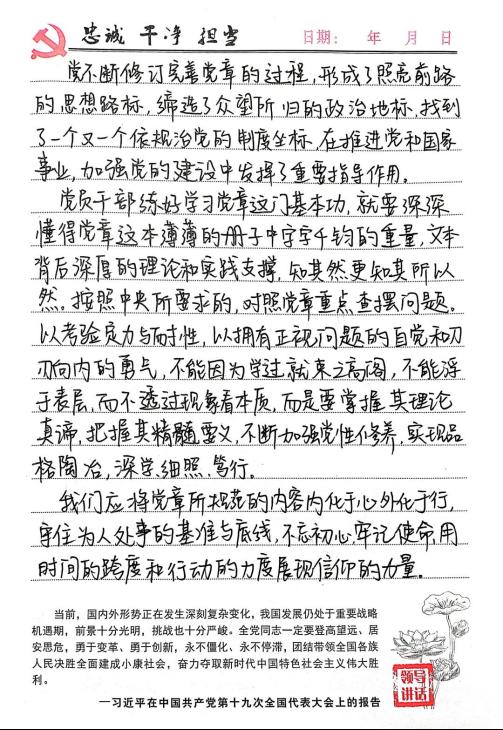 忠诚 干净 担当
日期: 年 月 日
党不断修订完善党章的过程,形成了照亮前路
的思想路标,缔造了众望所归的政治地标,找到
了一个又一个依规治党的制度坐标,在推进党和国家
事业,加强党的建设中发挥了重要指导作用。
党员干部练好学习党章这门基本功,就要深深
懂得党章这本薄薄的册子中字字千钧的重量,文本
背后深厚的理论和实践支撑,知其然更知其所以
然。按照中央所要求的,对照党章重点查摆问题。
以考验定力与耐性,以拥有正视问题的自觉和刀
刃向内的勇气,不能因为学过就束之高阁,不能浮
于表层,而不透过现象看本质,而是要掌握其理论
真谛,把握其精髓要义,不断加强党性修养,实现品
格陶冶,深学、细照、笃行。
我们应将党章所规范的内容内化于心外化于行,
守住为人处事的基准与底线,不忘初心,牢记使命,用
时间的跨度和行动的力度展现信仰的力量。
当前,国内外形势正在发生深刻复杂变化,我国发展仍处于重要战略
机遇期,前景十分光明,挑战也十分严峻。全党同志一定要登高望远、居
安思危,勇于变革、勇于创新,永不僵化、永不停滞,团结带领全国各族
人民决胜全面建成小康社会,奋力夺取新时代中国特色社会主义伟大胜
利。
—习近平在中国共产党第十九次全国代表大会上的报告
领导
讲话